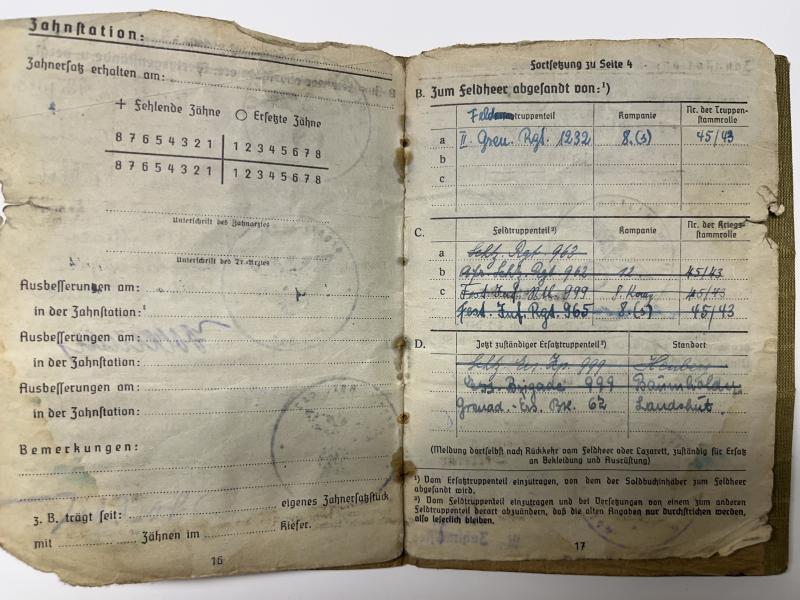 Zahnstation:
Zahnersatz erhalten am:
+ Fehlende Zähne ○ Ersetzte Zähne
8 7 6 5 4 3 2 1 | 1 2 3 4 5 6 7 8
8 7 6 5 4 3 2 1 | 1 2 3 4 5 6 7 8
Unterschrift des Zahnarztes
Unterschrift des Tr.-Arztes
Ausbesserungen am:
in der Zahnstation:
Ausbesserungen am:
in der Zahnstation:
Ausbesserungen am:
in der Zahnstation:
Bemerkungen:
z. B. trägt seit: eigenes Zahnersatzstück
mit Zähnen im Kiefer.
16
Fortsetzung zu Seite 4
B. Zum Feldheer abgesandt von:¹)
Feldtruppenteil Kompanie Nr. der Truppenstammrolle
a II. Gren. Rgt. 1232 8.(s) 45/43
b
c
C. Feldtruppenteil²) Kompanie Nr. der Kriegsstammrolle
a Schtz. Rgt 963
b Afr. Schtz. Rgt 962 12. 45/43
c Fest. Inf. Btl. 999 8. Komp 45/43
Fest. Inf. Rgt. 965 8.(s) 45/43
D. Jetzt zuständiger Ersatztruppenteil²) Standort
Schtz. Ers. 999 Heuberg
Ers. Brigade 999 Baumholder
Grenad.-Ers. Btl. 62 Landshut.
(Meldung dortselbst nach Rückkehr vom Feldheer oder Lazarett, zuständig für Ersatz
an Bekleidung und Ausrüstung)
¹) Vom Ersatztruppenteil einzutragen, von dem der Soldbuchinhaber zum Feldheer
abgesandt wird.
²) Vom Feldtruppenteil einzutragen und bei Versetzungen von einem zum anderen
Feldtruppenteil derart abzuändern, daß die alten Angaben nur durchstrichen werden,
also leserlich bleiben.
17